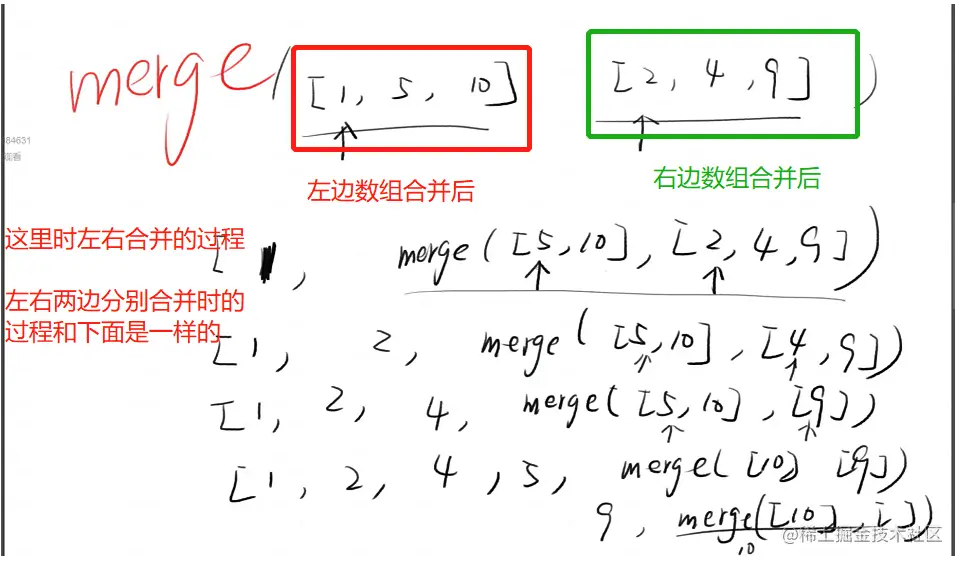 merge( [1, 5, 10] [2, 4, 9] )
84631
观看
左边数组合并后
右边数组合并后
这里时左右合并的过程
[1, merge([5,10], [2,4,9])
左右两边分别合并时的
过程和下面是一样的
[1, 2, merge([5,10], [4,9])
[1, 2, 4, merge([5,10], [9])
[1, 2, 4, 5, merge([10] [9])
9, merge([10], [])
10
@稀土掘金技术社区